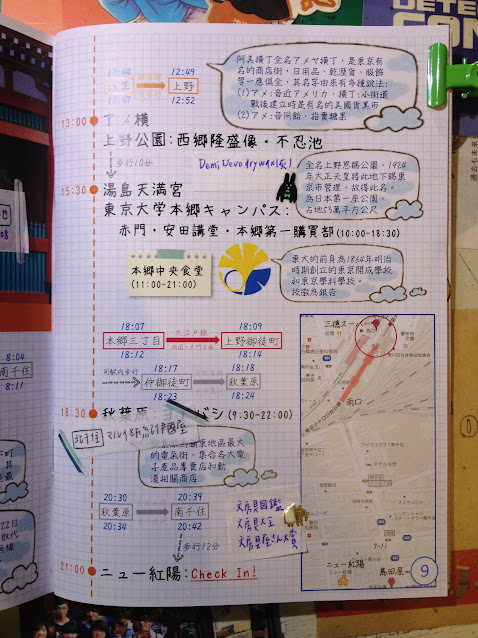 DETE
CON
12:48
12:49
上野
12:47
12:52
阿美橫丁全名アメヤ橫丁,是東京有
名的商店街,日用品、乾溼貨、服飾
等一應俱全,其名字由來有多種說法:
(1)アメ:音近アメリカ,橫丁:小街道
戰後建立時是有名的美國貨黑市
(2)アメ:音同飴,指賣糖果
13:00
アメ横
上野公園:西郷隆盛像・不忍池
步行10分
全名上野恩賜公園,1924
年大正天皇將此地下賜東
京市管理,故得此名。
為日本第一座公園,
占地53萬平方公尺
15:30
湯島天満宮
東京大学本郷キャンパス:
赤門・安田講堂・本郷第一購買部(10:00-18:30)
本郷中央食堂
(11:00-21:00)
東大的前身為1864年明治
時期創立的東京開成學校
和東京醫科學校。
校徽為銀杏
18:07
18:09
大江戸線
本郷三丁目
上野御徒町
18:12
18:14
同駅内步行
18:17
18:18
仲御徒町
秋葉原
18:23
18:24
18:30
秋葉原:
バシ(9:30-22:00)
北千住
關東地區最大
的電氣街,集合各大電
子產品專賣店和動
漫相關商店
20:30
20:39
秋葉原
南千住
20:34
20:42
步行12分
文房具図鑑
文房具大王
文房具屋さん大賞
21:00
ニュー紅陽:Check In!
三德スーパー
南口
7-11
ニュー紅陽
島田屋
9
8:04
南千住
8:11
22日
取代